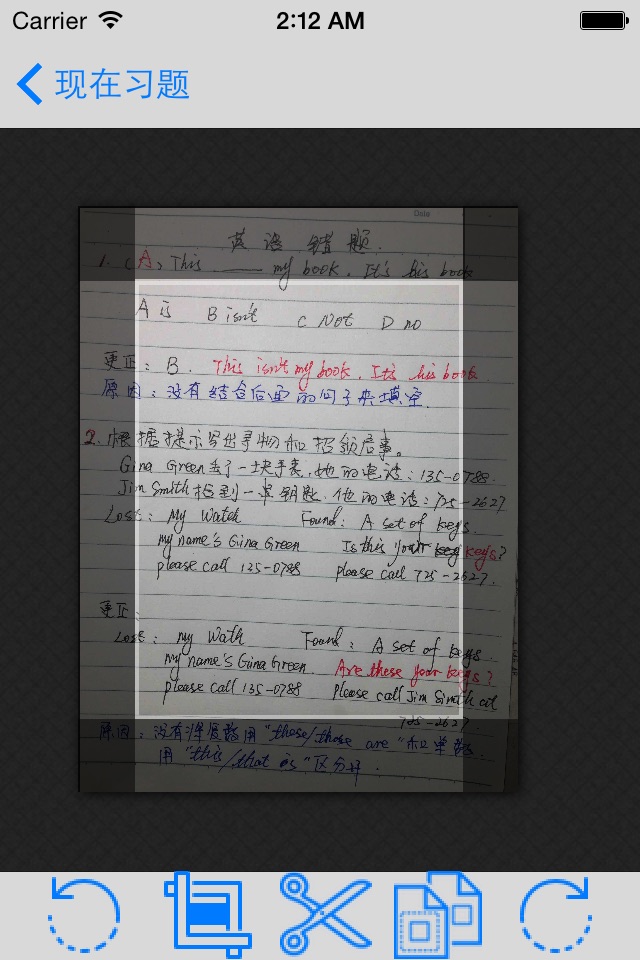 Carrier 2:12 AM
现在习题
Date
英语错题.
1. (A) This ____ my book. It's his book
A is B isn't C Not D no
更正: B. This isn't my book. It's his book
原因: 没有结合后面的句子来填空.
2. 根据提示写出寻物和招领启事。
Gina Green丢了一块手表, 她的电话: 135-0788.
Jim Smith拾到一串钥匙. 他的电话: 725-2627
Lost: My Watch Found: A set of keys.
my name's Gina Green Is this your keys?
please call 125-0788 please call 725-2627.
更正:
Lost: my Wath Found: A set of keys.
my name's Gina Green Are these your keys?
please call 135-0788 please call Jim Simith at
725-2627.
原因: 没有 用 "these/those are" 和单数
用 "this/that is" 区分开.